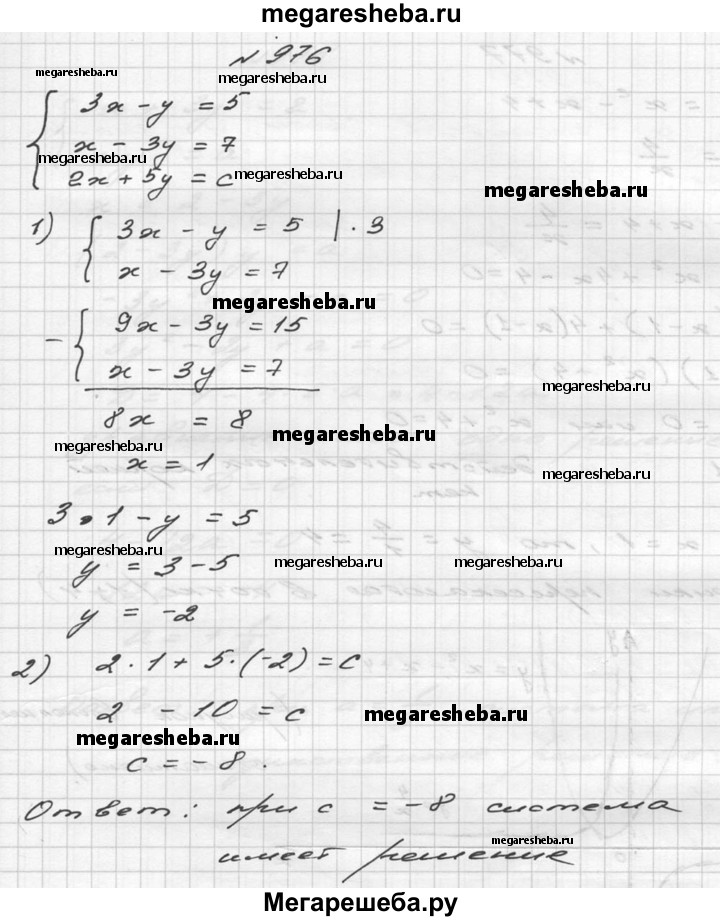 megaresheba.ru
№ 976
megaresheba.ru
megaresheba.ru
3x - y = 5
x - 3y = 7
megaresheba.ru
2x + 5y = c
megaresheba.ru
megaresheba.ru
1) 3x - y = 5 | · 3
x - 3y = 7
megaresheba.ru
- 9x - 3y = 15
x - 3y = 7
megaresheba.ru
8x = 8
megaresheba.ru
megaresheba.ru
x = 1
megaresheba.ru
3 · 1 - y = 5
megaresheba.ru
megaresheba.ru
megaresheba.ru
y = 3 - 5
y = -2
2) 2 · 1 + 5 · (-2) = c
2 - 10 = c
megaresheba.ru
megaresheba.ru
c = -8.
Ответ: при c = -8 система
megaresheba.ru
имеет решение
Мегарешеба.ру